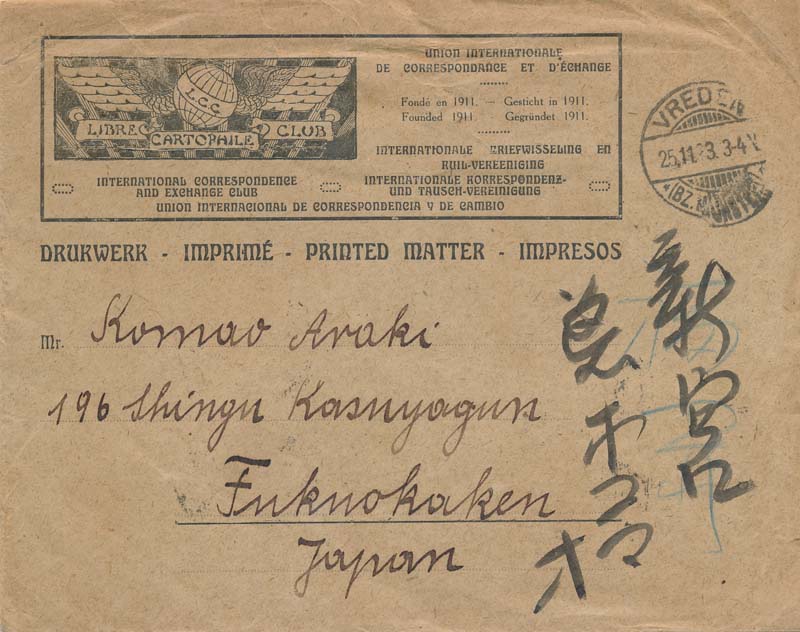 UNION INTERNATIONALE
DE CORRESPONDANCE ET D'ÉCHANGE
L.C.C.
LIBRE CARTOPHILE CLUB
Fondé en 1911. — Gesticht in 1911.
Founded 1911. Gegründet 1911.
INTERNATIONALE BRIEFWISSELING EN
RUIL-VEREENIGING
INTERNATIONAL CORRESPONDENCE
AND EXCHANGE CLUB
INTERNATIONALE KORRESPONDENZ-
UND TAUSCH-VEREINIGUNG
UNION INTERNACIONAL DE CORRESPONDENCIA Y DE CAMBIO
VREDEN
25.11.23. 3-4 V
(BZ. MÜNSTER)
DRUKWERK - IMPRIMÉ - PRINTED MATTER - IMPRESOS
Mr. Komao Araki
196 Shingu Kasuyagun
Fukuokaken
Japan
新宮